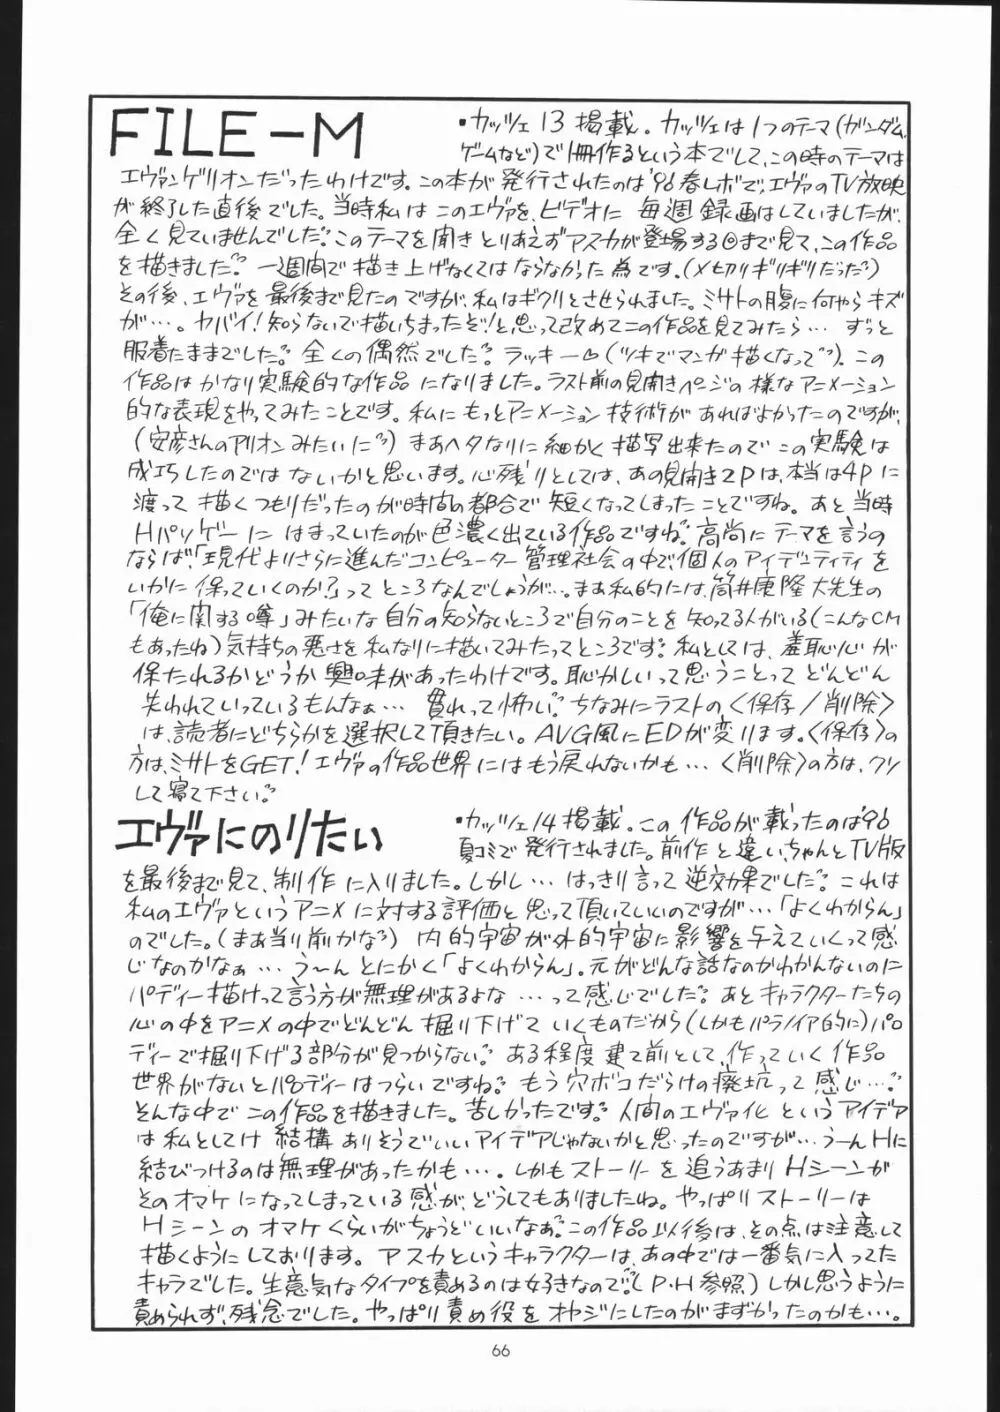 FILE-M
・カッツェ13掲載。カッツェは1つのテーマ(ガンダム、
ゲームなど)で1冊作るという本でして、この時のテーマは
エヴァンゲリオンだったわけです。この本が発行されたのは'96春レボで、エヴァのTV放映
が終了した直後でした。当時私はこのエヴァを、ビデオに毎週録画はしていましたが、
全く見ていませんでした。このテーマを聞きとりあえずアスカが登場する回まで見て、この作品
を描きました。一週間で描き上げなくてはならなかった為です。(〆切りギリギリだった)
その後、エヴァを最後まで見たのですが、私はギクリとさせられました。ミサトの腹に何やらキズ
が…。ヤバイ!知らないで描いちまったぞ!と思って改めてこの作品を見てみたら…ずっと
服着たままでした。全くの偶然でした。ラッキー♡(ツキでマンガ描くなって)。この
作品はかなり実験的な作品になりました。ラスト前の見開きページの様なアニメーション
的な表現をやってみたことです。私にもっとアニメーション技術があればよかったのですが、
(安彦さんのアリオンみたいに)まあヘタなりに細かく描写出来たのでこの実験は
成功したのではないかと思います。心残りとしては、あの見開き2Pは、本当は4Pに
渡って描くつもりだったのが時間の都合で短くなってしまったことですね。あと当時
Hパソゲーにはまっていたのが色濃く出ている作品ですね。高尚にテーマを言うの
ならば、「現代よりさらに進んだコンピューター管理社会の中で、個人のアイデンティティを
いかに保っていくのか?」ってところなんでしょうが…。まあ私的には、筒井康隆大先生の
「俺に関する噂」みたいな自分の知らないところで自分のことを知ってる人がいる(こんなCM
もあったね)気持ちの悪さを私なりに描いてみたってところです。私としては、羞恥心が
保たれるかどうか興味があったわけです。恥かしいって思うことってどんどん
失われていっているもんなぁ…慣れって怖い。ちなみにラストの〈保存/削除〉
は、読者にどちらかを選択して頂きたい。AVG風にEDが変ります。〈保存〉の
方は、ミサトをGET!エヴァの作品世界にはもう戻れないかも…〈削除〉の方は、クソ
して寝て下さい。
エヴァにのりたい
・カッツェ14掲載。この作品が載ったのは'96
夏コミで発行されました。前作と違い、ちゃんとTV版
を最後まで見て、制作に入りました。しかし…はっきり言って逆効果でした。これは
私のエヴァというアニメに対する評価と思って頂いていいのですが…「よくわからん」
のでした。(まあ当り前かな)内的宇宙が外的宇宙に影響を与えていくって感
じなのかなぁ…う〜んとにかく「よくわからん」。元がどんな話なのかわかんないのに
パロディー描けって言う方が無理があるよな…って感じでした。あとキャラクターたちの
心の中をアニメの中でどんどん掘り下げていくものだから(しかもパラノイア的に)パロ
ディーで掘り下げる部分が見つからない。ある程度建て前として、作っていく作品
世界がないとパロディーはつらいですね。もう穴ボコだらけの廃坑って感じ…。
そんな中でこの作品を描きました。苦しかったです。人間のエヴァ化というアイデア
は私としては結構ありそうでいいアイデアじゃないかと思ったのですが…うーんHに
結びつけるのは無理があったかも…。しかもストーリーを追うあまりHシーンが
そのオマケになってしまっている感が、どうしてもありましたね。やっぱりストーリーは
Hシーンのオマケくらいがちょうどいいなぁ。この作品以後は、その点は注意して
描くようにしております。アスカというキャラクターは、あの中では一番気に入ってた
キャラでした。生意気なタイプを責めるのは好きなので。(P・H参照)しかし思うように
責められず、残念でした。やっぱり責め役をオヤジにしたのがまずかったのかも…。
66